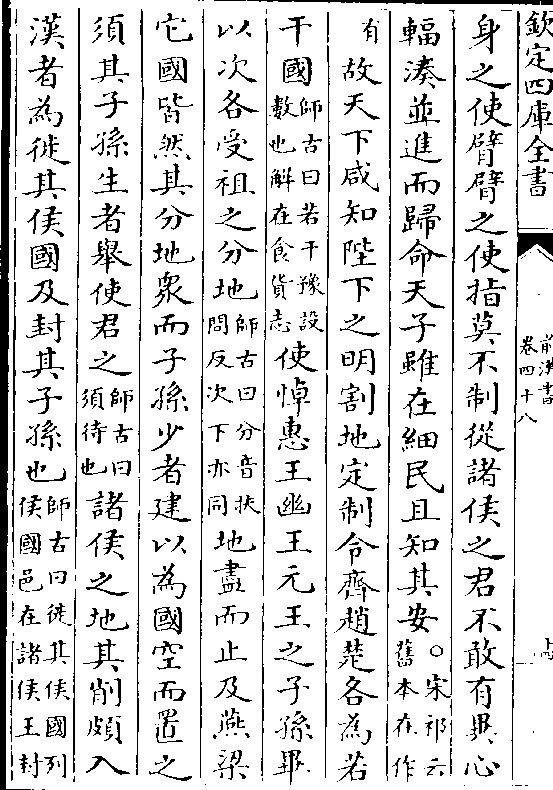 欽定四庫全書
前漢書
卷四十八
身之使臂臂之使指莫不制從諸侯之君不敢有異心
輻湊並進而歸命天子雖在細民且知其安○宋祁云舊本在作
有故天下咸知陛下之明割地定制令齊趙楚各為若
干國師古曰若干豫設數也解在食貨志使悼惠王幽王元王之子孫畢
以次各受祖之分地師古曰分音扶問反次下亦同地盡而止及燕梁
它國皆然其分地衆而子孫少者建以為國空而置之
須其子孫生者舉使君之師古曰須待也諸侯之地其削頗入
漢者為徙其侯國及封其子孫也師古曰徙其侯國列侯國邑在諸侯王封